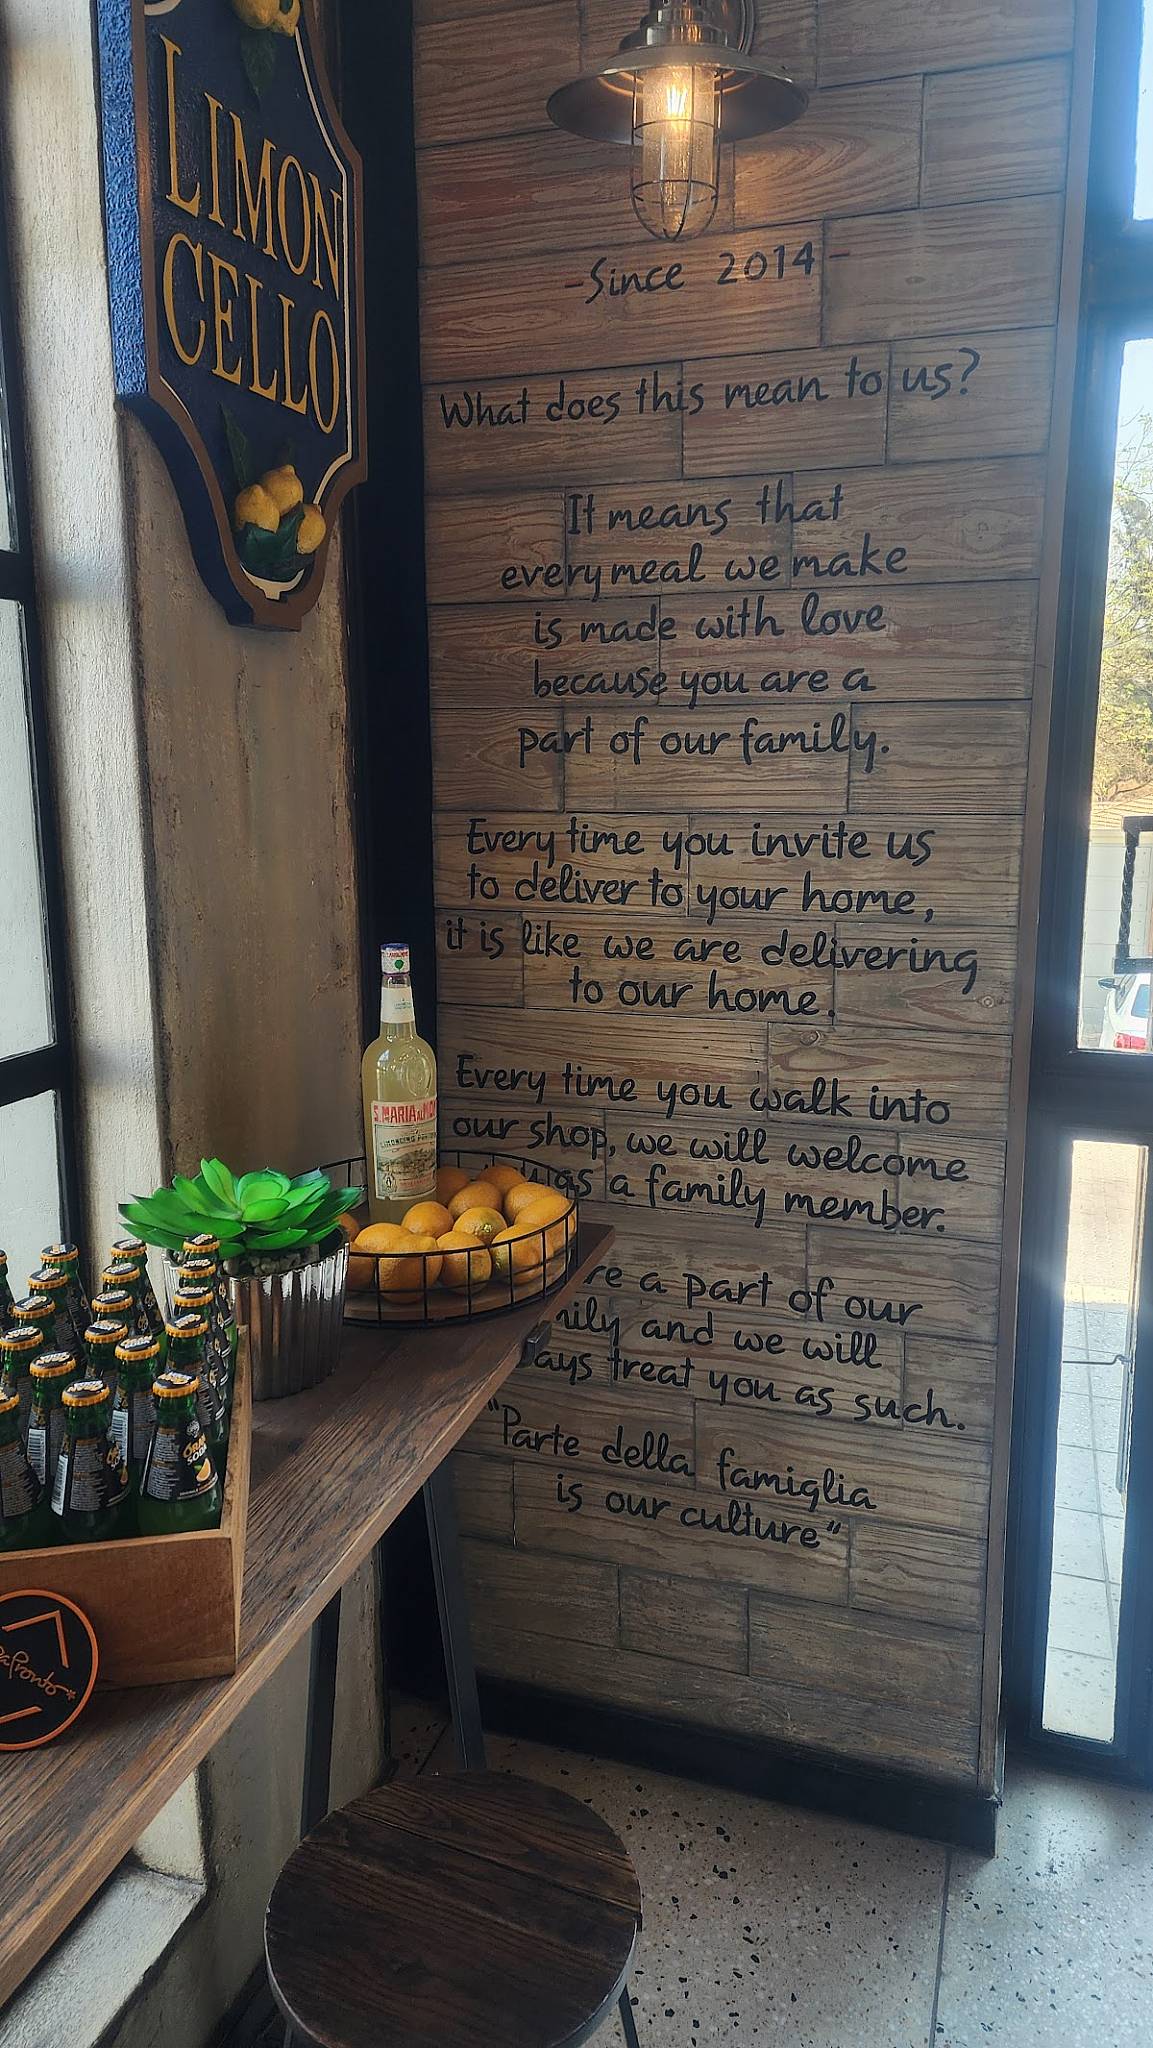 LIMON
CELLO
-Since 2014-
What does this mean to us?
It means that
every meal we make
is made with love
because you are a
part of our family.
Every time you invite us
to deliver to your home,
it is like we are delivering
to our home.
Every time you walk into
our shop, we will welcome
as a family member.
a part of our
and we will
treat you as such.
"Parte della famiglia
is our culture"
S. MARIA